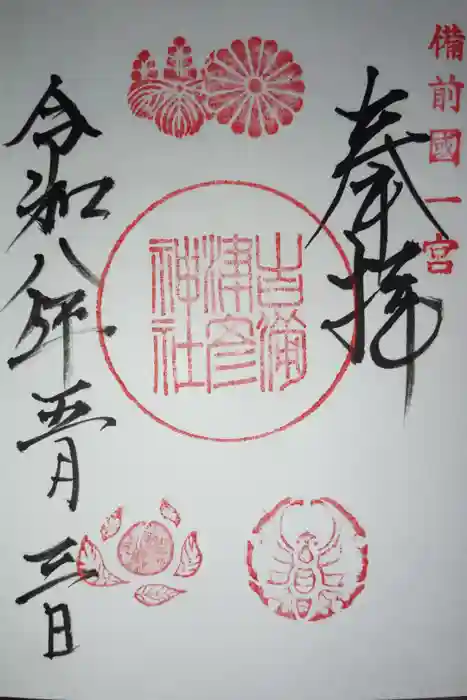 備前國一宮
奉拝
吉備
津彦
神社
令和八年五月三日